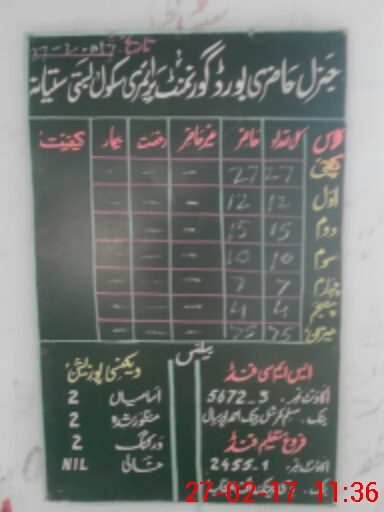 تاریخ 27-2-2017
جنرل حاضری بورڈ گورنمنٹ پرائمری سکول بستی
کلاس کل تعداد حاضر غیر حاضر رخصت بیمار کیفیت
کچی 27 27 - - -
اول 12 12 - - -
دوم 15 15 - - -
سوم 10 10 - - -
چہارم 7 7 - - -
پنجم 4 4 - - -
میزان 75 75 - - -
بیلنس
ایس ایم سی فنڈ
اکاؤنٹ نمبر 5672-3
بنک مسلم کمرشل بنک احمد پور سیال
فروغ تعلیم فنڈ
اکاؤنٹ نمبر 2455-1
ویکنسی پوزیشن
اسامیاں 2
منظور شدہ 2
ورکنگ 2
خالی NIL
27-02-17 11:36